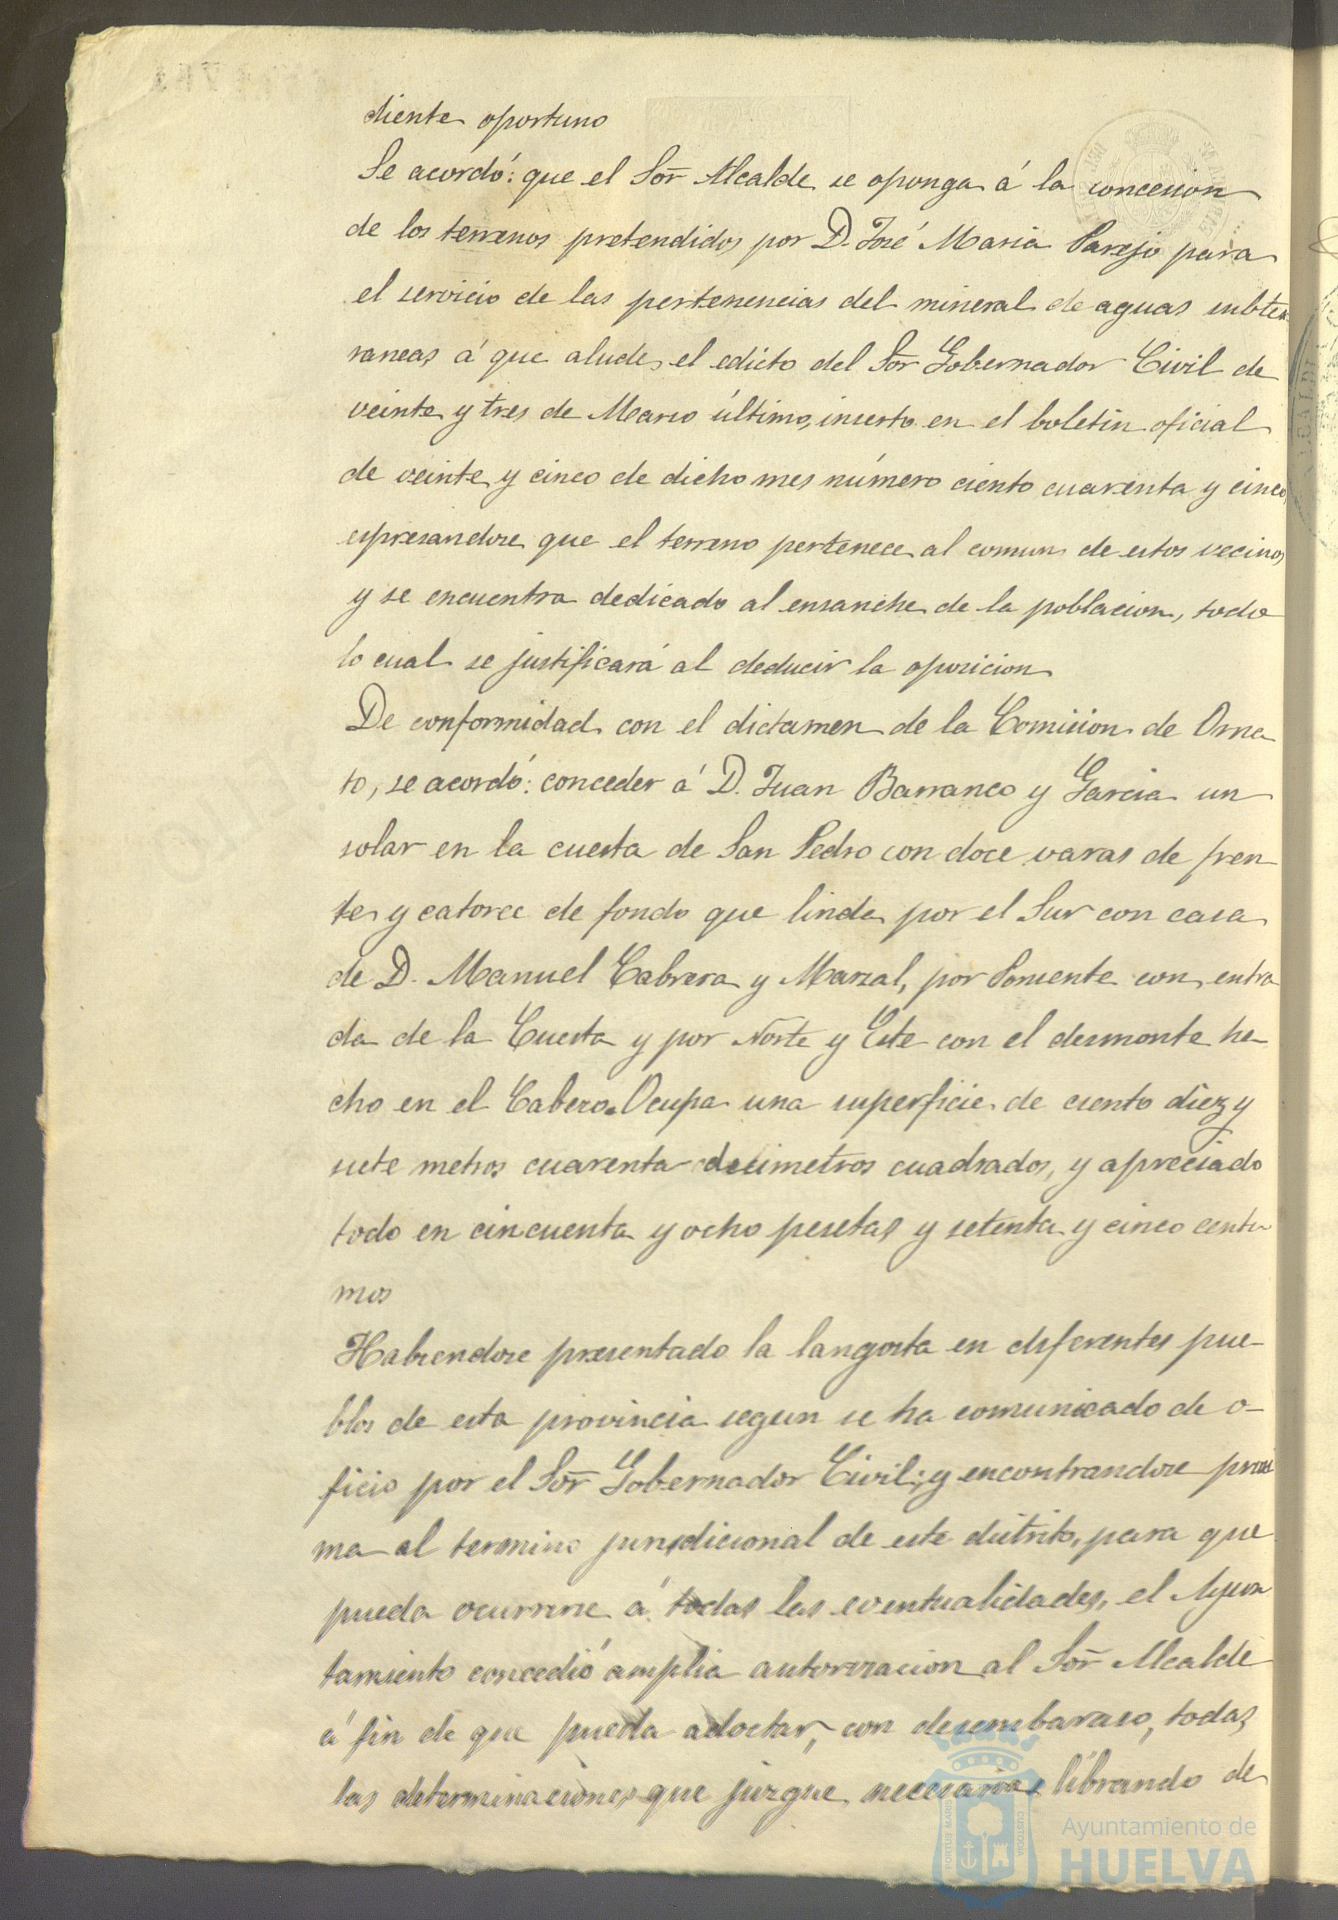 diente oportuno
Se acordó: que el Sor Alcalde se oponga á la concesion
de los terrenos pretendidos por D. José Maria Parejo para
el servicio de las pertenencias del mineral de aguas subter
raneas á que alude el edicto del Sor Gobernador Civil de
veinte y tres de Marzo último, inserto en el boletin oficial
de veinte y cinco de dicho mes número ciento cuarenta y cinco,
espresandose que el terreno pertenece al comun de estos vecinos
y se encuentra dedicado al ensanche de la poblacion, todo
lo cual se justificará al deducir la oposicion
De conformidad con el dictamen de la Comision de Orna
to, se acordó: conceder á D. Juan Barranco y Garcia un
solar en la cuesta de San Pedro con doce varas de fren-
te y catorce de fondo que linda por el Sur con casa
de D. Manuel Cabrera y Marzal, por Poniente con entra
da de la Cuesta y por Norte y Este con el desmonte he-
cho en el Cabezo. Ocupa una superficie de ciento diez y
siete metros cuarenta decimetros cuadrados, y apreciado
todo en cincuenta y ocho pesetas y setenta y cinco centi
mos
Habiendose presentado la langosta en diferentes pue-
blos de esta provincia segun se ha comunicado de o-
ficio por el Sor Gobernador Civil; y encontrandose proxi
ma al termino jurisdicional de este distrito, para que
pueda ocurrirse á todas las eventualidades, el Ayun
tamiento concedió amplia autorizacion al Sor Alcalde
á fin de que pueda adoctar, con desembarazo, todas
las determinaciones que juzgue necesarias librando de
Ayuntamiento de
HUELVA
PORTUS MARIS
CUSTODIA